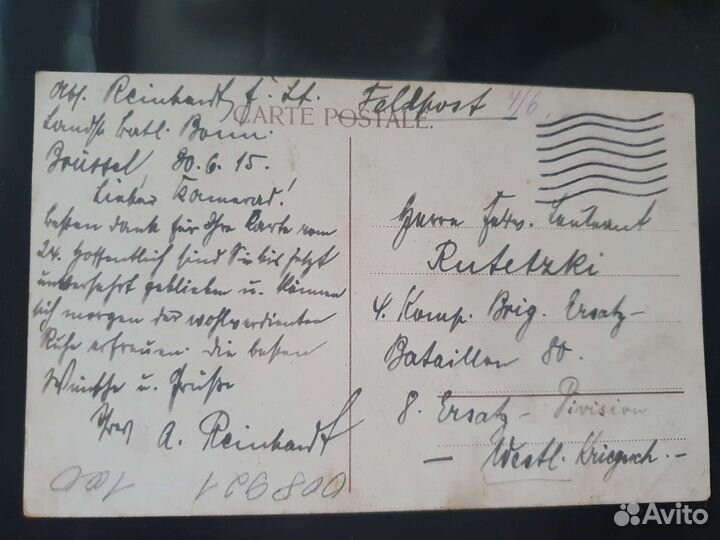 Abs. Reinhardt, F. Lt.
Feldpost 4/6
CARTE POSTALE.
Landst. Batl. Bonn.
Brüssel, 30.6.15.
Lieber Kamerad!
besten Dank für Ihre Karte vom
24. Hoffentlich sind Sie bis jetzt
unversehrt geblieben u. können
sich morgen der wohlverdienten
Ruhe erfreuen. die besten
Wünsche u. Grüße
Ihr
A. Reinhardt
Herrn Feldw. Leutnant
Rutetzki
4. Komp. Brig. Ersatz-
Bataillon 80.
8. Ersatz- Division
- Westl. Kriegssch. -
008921
100
Avito